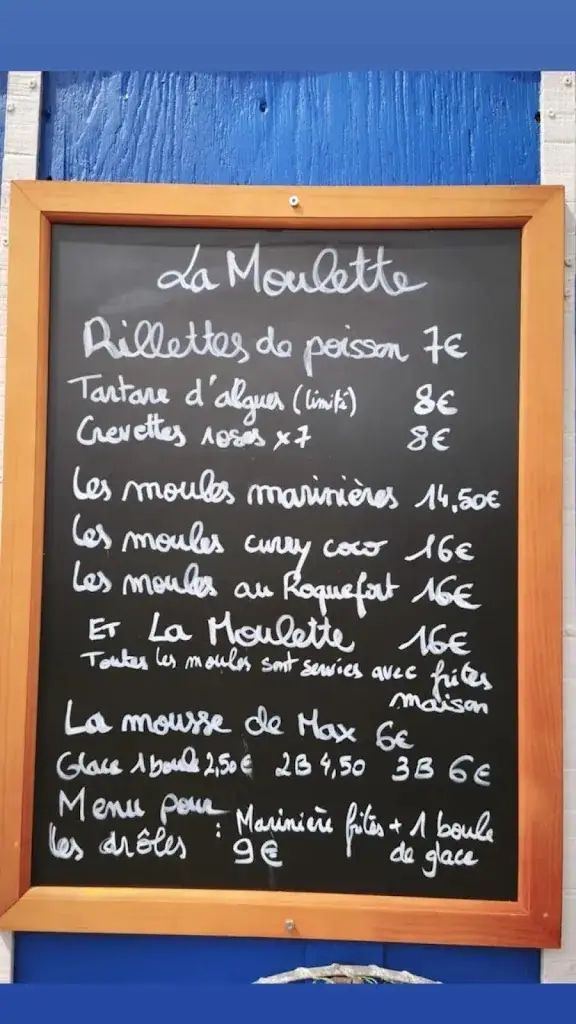 La Moulette
Rillettes de poisson 7€
Tartare d'algues (limité) 8€
Crevettes roses x7 8€
Les moules marinières 14,50€
Les moules curry coco 16€
Les moules au Roquefort 16€
ET La Moulette 16€
Toutes les moules sont servies avec frites
maison
La mousse de Max 6€
Glace 1 boule 2,50€ 2B 4,50 3B 6€
Menu pour
les drôles : Marinière frites + 1 boule
9€ de glace